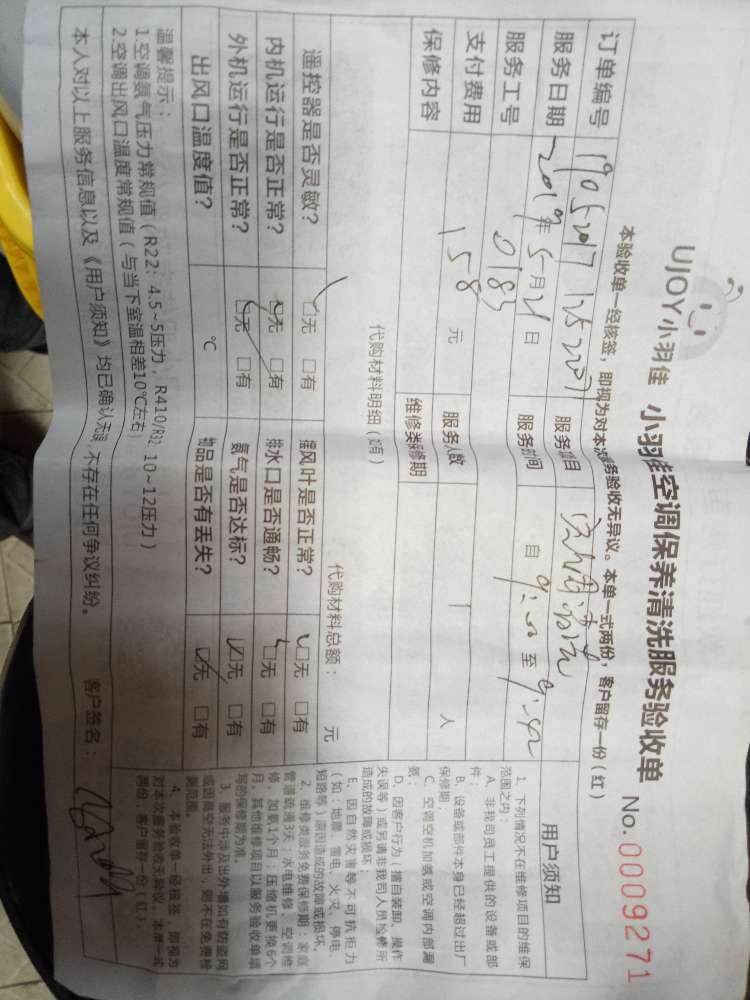 UJOY小羽佳 小羽佳空调保养清洗服务验收单 No. 0009271
本验收单一经核签，即视为对本次服务验收无异议。本单一式两份，客户留存一份（红）
订单编号 服务项目
服务日期 2019年5月21日 服务时间 自 9:00 至 9:50
服务工号 0183
支付费用 158 元 服务人数 1 人
保修内容 维修类保修期
代购材料明细（如有）
代购材料总额： 元
遥控器是否灵敏？ □无 □有 摆风叶是否正常？ □无 □有
内机运行是否正常？ □无 □有 排水口是否通畅？ □无 □有
外机运行是否正常？ □无 □有 氨气是否达标？ □无 □有
出风口温度值？ ℃ 物品是否有丢失？ □无 □有
温馨提示：
1.空调氨气压力常规值（R22：4.5~5压力，R410/R32，10~12压力）
2.空调出风口温度常规值（与当下室温相差10℃左右）
本人对以上服务信息以及《用户须知》均已确认无误，不存在任何争议纠纷。 客户签名：
用户须知
1、下列情况不在维修项目的维保
范围之内：
A、非我司员工提供的设备或部
件；
B、设备或部件本身已经超过出厂
保修期；
C、空调空机加氨或空调内部漏
氨；
D、因客户行为（擅自装卸、操作
失误等）或另请非我司人员检修所
造成的故障或损坏；
E、因自然灾害等不可抗拒力
（如：地震、雷电、火灾、停电、
短路等）原因造成的故障或损坏。
2、维修类服务免费保修期：家庭
管道疏通3天；水电维修、空调维
修、加氨1个月；压缩机更换6个
月，其他维修项目以服务验收单填
写的保修期为准。
3、服务中涉及出外墙如有防盗网
或因高空无法外出，则不在免费检
测范围。
4、本验收单一经核签，即视为
对本次服务验收无异议，本单一式
两份，客户留存一份（红）。